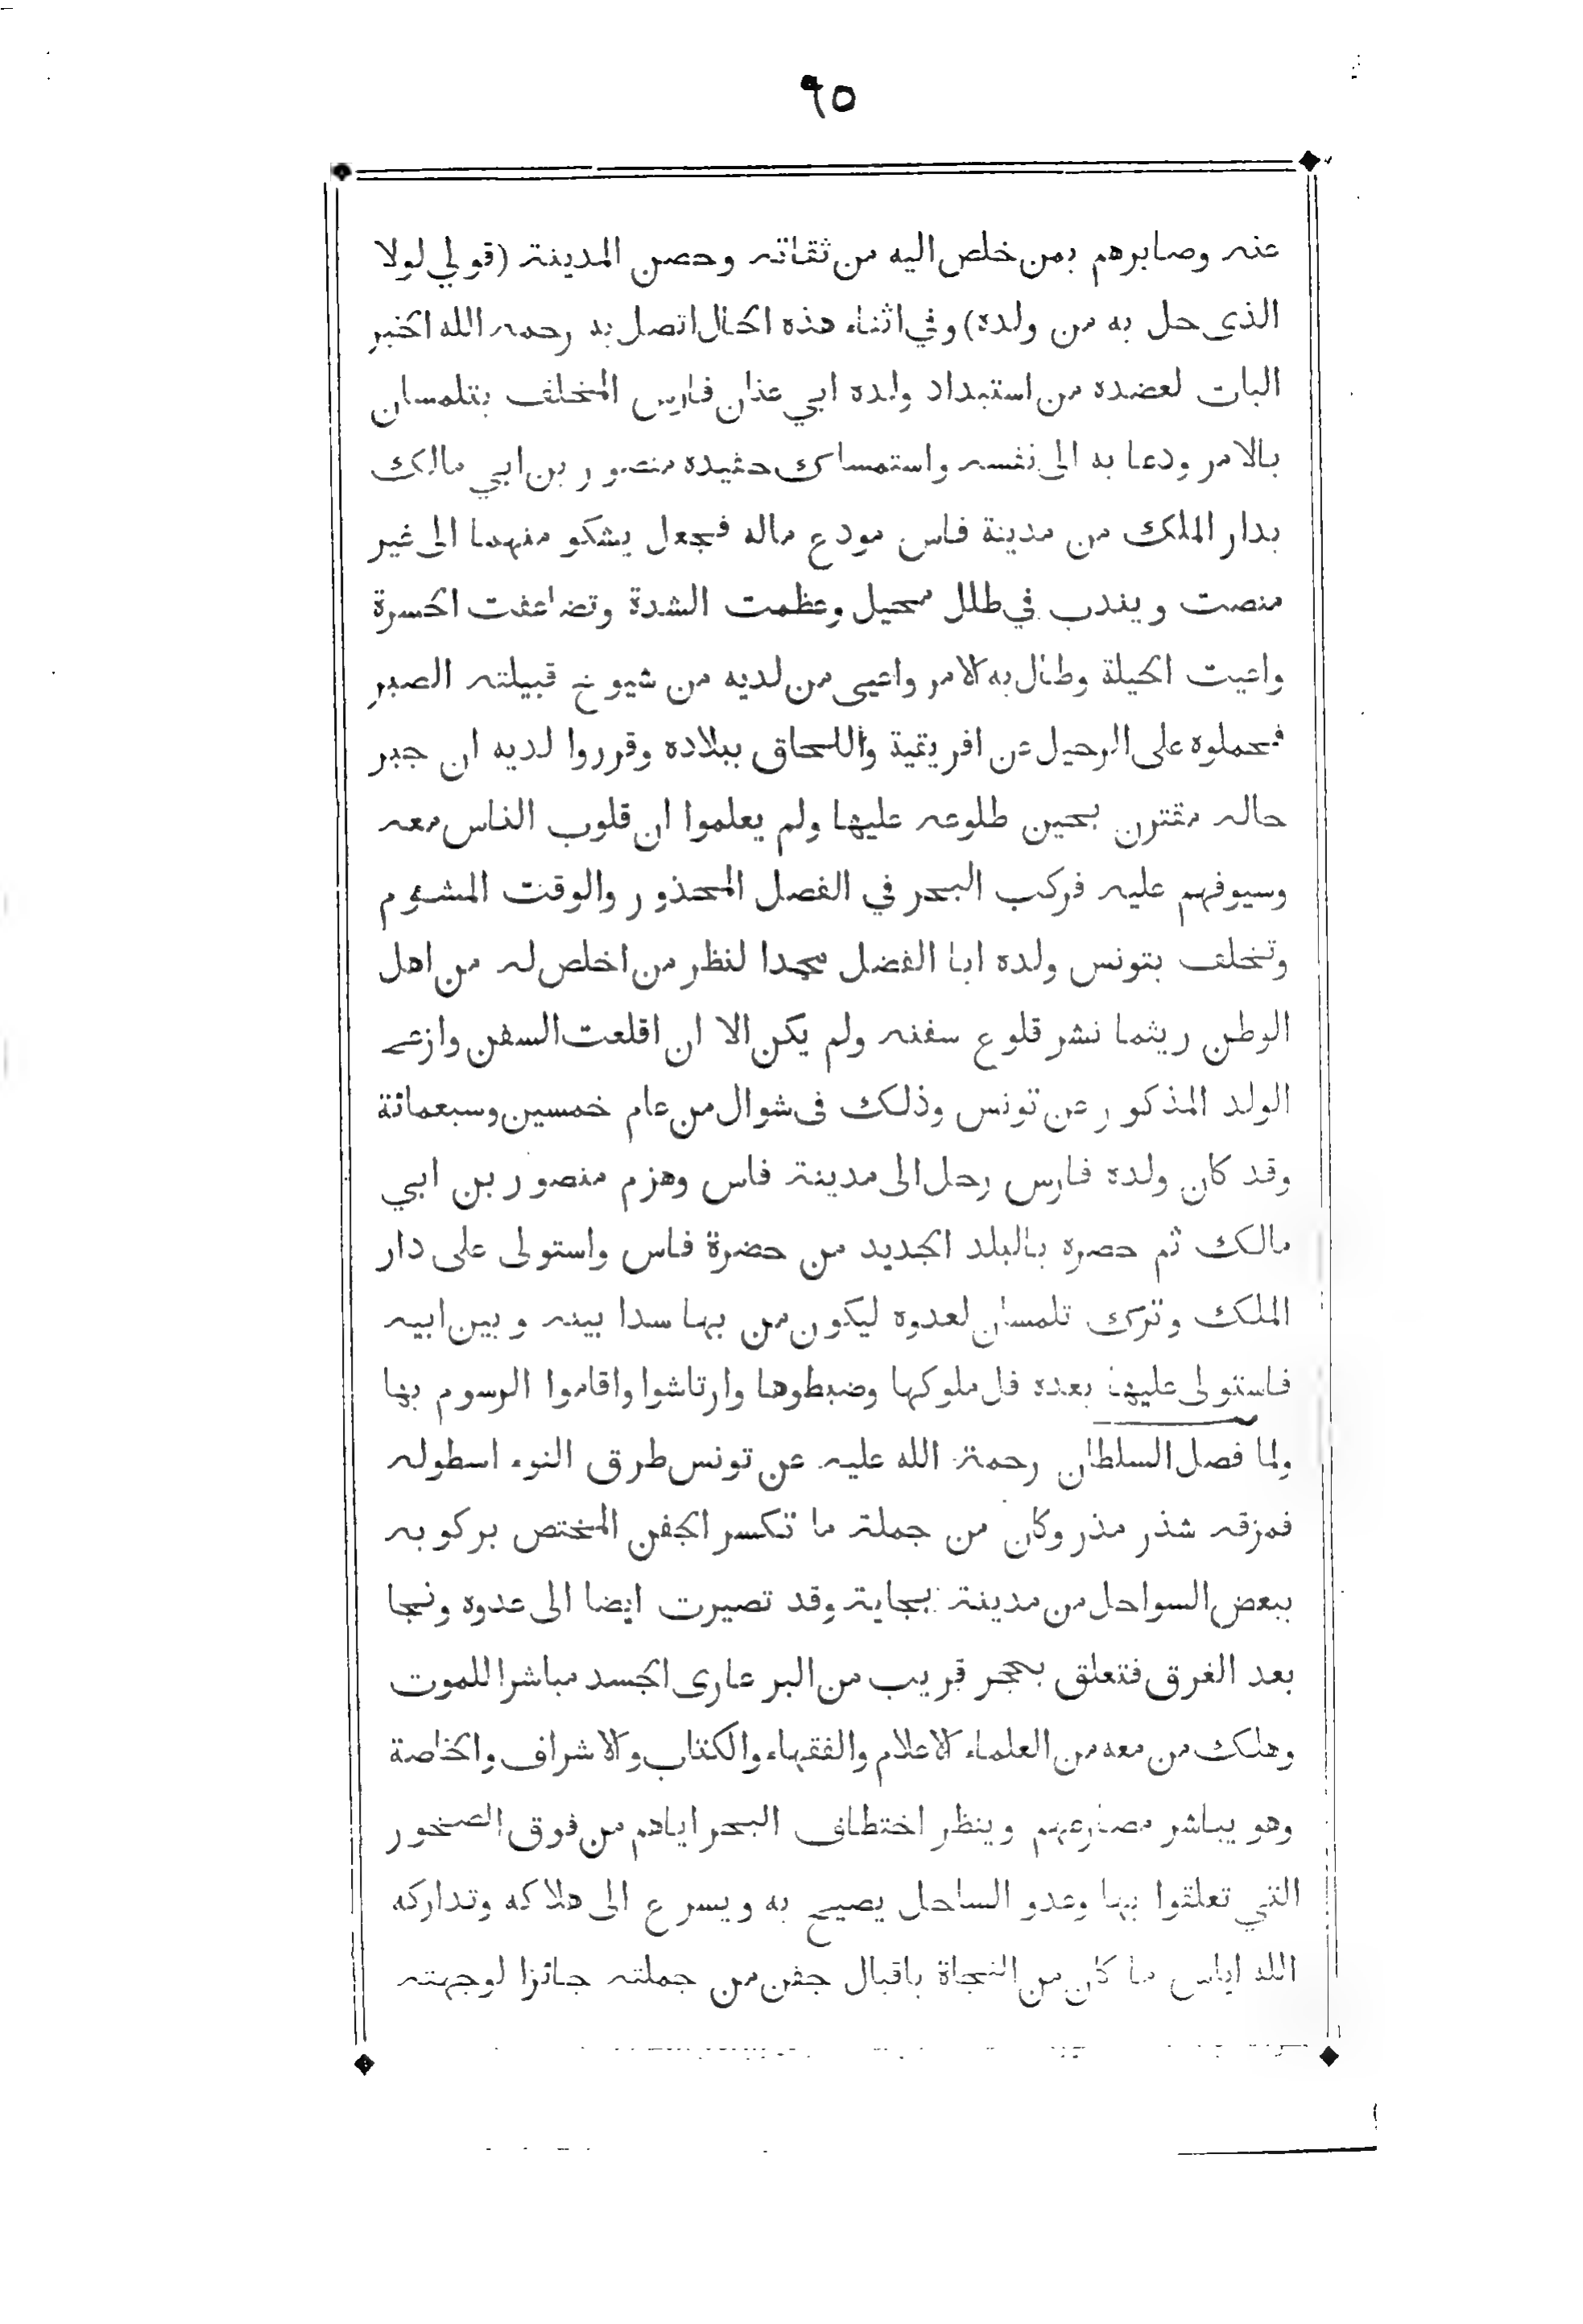 ٩٥
عنه وصابرهم بمن خلص اليه من ثقاته وحصن المدينة (قولي لولا
الذى حل به من ولده) وفي اثناء هذه الحال اتصل به رحمه الله الخبر
البات لعضده من استبداد ولده ابي عنان فارس المخلف بتلمسان
بالامر ودعا به الى نفسه واستمساك حفيده منصور بن ابي مالك
بدار الملك من مدينة فاس مودع ماله فجعل يشكو منهما الى غير
منصت ويندب في طلل محيل وعظمت الشدة وتضاعفت الحسرة
واعيت الحيلة وطال به الامر واعيى من لديه من شيوخ قبيلته الصبر
فحملوه على الرحيل عن افريقية واللحاق ببلاده وقرروا لديه ان جبر
حاله مقترن بحين طلوعه عليها ولم يعلموا ان قلوب الناس معه
وسيوفهم عليه فركب البحر في الفصل المحذور والوقت المشوم
وتخلف بتونس ولده ابا الفضل محمدا لنظر من اخلص له من اهل
الوطن ريثما نشر قلوع سفنه ولم يكن الا ان اقلعت السفن وازعج
الولد المذكور عن تونس وذلك فى شوال من عام خمسين وسبعمائة
وقد كان ولده فارس رحل الى مدينة فاس وهزم منصور بن ابي
مالك ثم حصره بالبلد الجديد من حضرة فاس واستولى على دار
الملك وترك تلمسان لعدوه ليكون من بها سدا بينه وبين ابيه
فاستولى عليها بعده فل ملوكها وضبطوها وارتاشوا واقاموا الرسوم بها
ولما فصل السلطان رحمة الله عليه عن تونس طرق النوء اسطوله
فمزقه شذر مذر وكان من جملة ما تكسر الجفن المختص بركوبه
ببعض السواحل من مدينة بجاية وقد تصيرت ايضا الى عدوه ونجا
بعد الغرق فتعلق بحجر قريب من البر عارى الجسد مباشرا للموت
وهلك من معه من العلماء الاعلام والفقهاء والكتاب والاشراف والخاصة
وهو يباشر مصارعهم وينظر اختطاف البحر اياهم من فوق الصخور
التي تعلقوا بها وعدو الساحل يصيح به ويسرع الى هلاكه وتداركه
الله اياس ما كان من النجاة باقبال جفن من جملته جائزا لوجهته